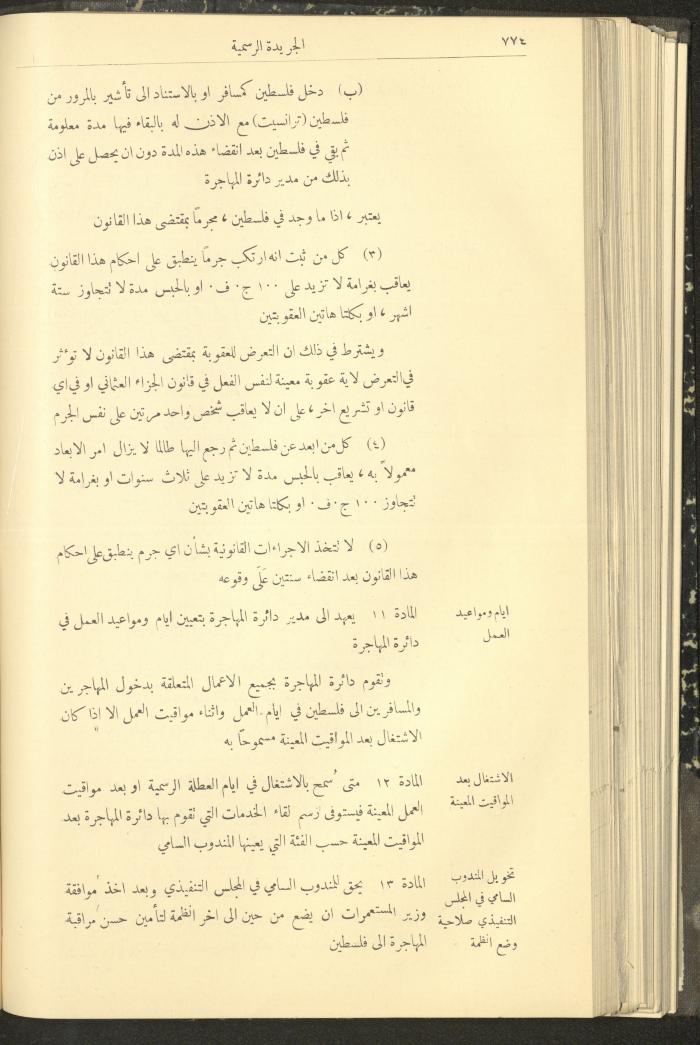 ٧٧٤
الجريدة الرسمية
(ب) دخل فلسطين كمسافر او بالاستناد الى تأشير بالمرور من
فلسطين (ترانسيت) مع الاذن له بالبقاء فيها مدة معلومة
ثم بقي في فلسطين بعد انقضاء هذه المدة دون ان يحصل على اذن
بذلك من مدير دائرة المهاجرة
يعتبر ، اذا ما وجد في فلسطين ، مجرمًا بمقتضى هذا القانون
(٣) كل من ثبت انه ارتكب جرمًا ينطبق على احكام هذا القانون
يعاقب بغرامة لا تزيد على ١٠٠ ج٠ ف٠ او بالحبس مدة لا تتجاوز ستة
اشهر ، او بكلتا هاتين العقوبتين
ويشترط في ذلك ان التعرض للعقوبة بمقتضى هذا القانون لا تؤثر
في التعرض لاية عقوبة معينة لنفس الفعل في قانون الجزاء العثماني او في اي
قانون او تشريع اخر ، على ان لا يعاقب شخص واحد مرتين على نفس الجرم
(٤) كل من ابعد عن فلسطين ثم رجع اليها طالما لا يزال امر الابعاد
معمولاً به ، يعاقب بالحبس مدة لا تزيد على ثلاث سنوات او بغرامة لا
تتجاوز ١٠٠ ج٠ ف٠ او بكلتا هاتين العقوبتين
(٥) لا تتخذ الاجراءات القانونية بشأن اي جرم ينطبق على احكام
هذا القانون بعد انقضاء سنتين عَلَى وقوعه
ايام ومواعيد
العمل
المادة ١١ يعهد الى مدير دائرة المهاجرة بتعيين ايام ومواعيد العمل في
دائرة المهاجرة
وتقوم دائرة المهاجرة بجميع الاعمال المتعلقة بدخول المهاجرين
والمسافرين الى فلسطين في ايام العمل واثناء مواقيت العمل الا اذا كان
الاشتغال بعد المواقيت المعينة مسموحًا به
الاشتغال بعد
المواقيت المعينة
المادة ١٢ متى سُمح بالاشتغال في ايام العطلة الرسمية او بعد مواقيت
العمل المعينة فيستوفى رسم لقاء الخدمات التي تقوم بها دائرة المهاجرة بعد
المواقيت المعينة حسب الفئة التي يعينها المندوب السامي
تخويل المندوب
السامي في المجلس
التنفيذي صلاحية
وضع انظمة
المادة ١٣ يحق للمندوب السامي في المجلس التنفيذي وبعد اخذ موافقة
وزير المستعمرات ان يضع من حين الى اخر انظمة لتأمين حسن مراقبة
المهاجرة الى فلسطين